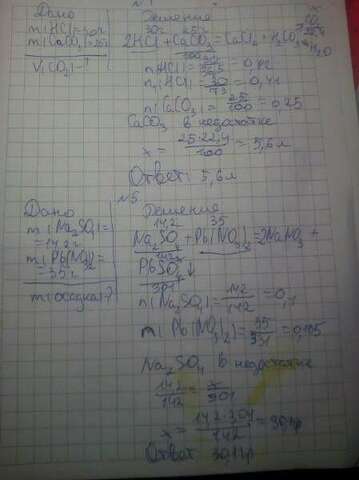 Дано
m(HCl)=30г
m(CaCO₃)=25г
V(CO₂)-?
Решение
30г 25г x
2HCl+CaCO₃=CaCl₂+H₂CO₃
H₂O
n(HCl)=
n(HCl)=30/73=0,4г
n(CaCO₃)=25/100=0,25
CaCO₃ в недостатке
x=25·22,4/100=5,6л
Ответ: 5,6л
№5
Дано
m(Na₂SO₄)=
=14,2г
m(Pb(NO₃)₂)
=35г
m(осадка)?
Решение
14,2 35
Na₂SO₄+Pb(NO₃)₂=2NaNO₃+
PbSO₄↓
n(Na₂SO₄)=14,2/142=0,1
n(Pb(NO₃)₂)=35/331=0,105
Na₂SO₄ в недостатке
14,2/142=x/301
x=14,2·301/142=30,1гр
Ответ 30,1гр